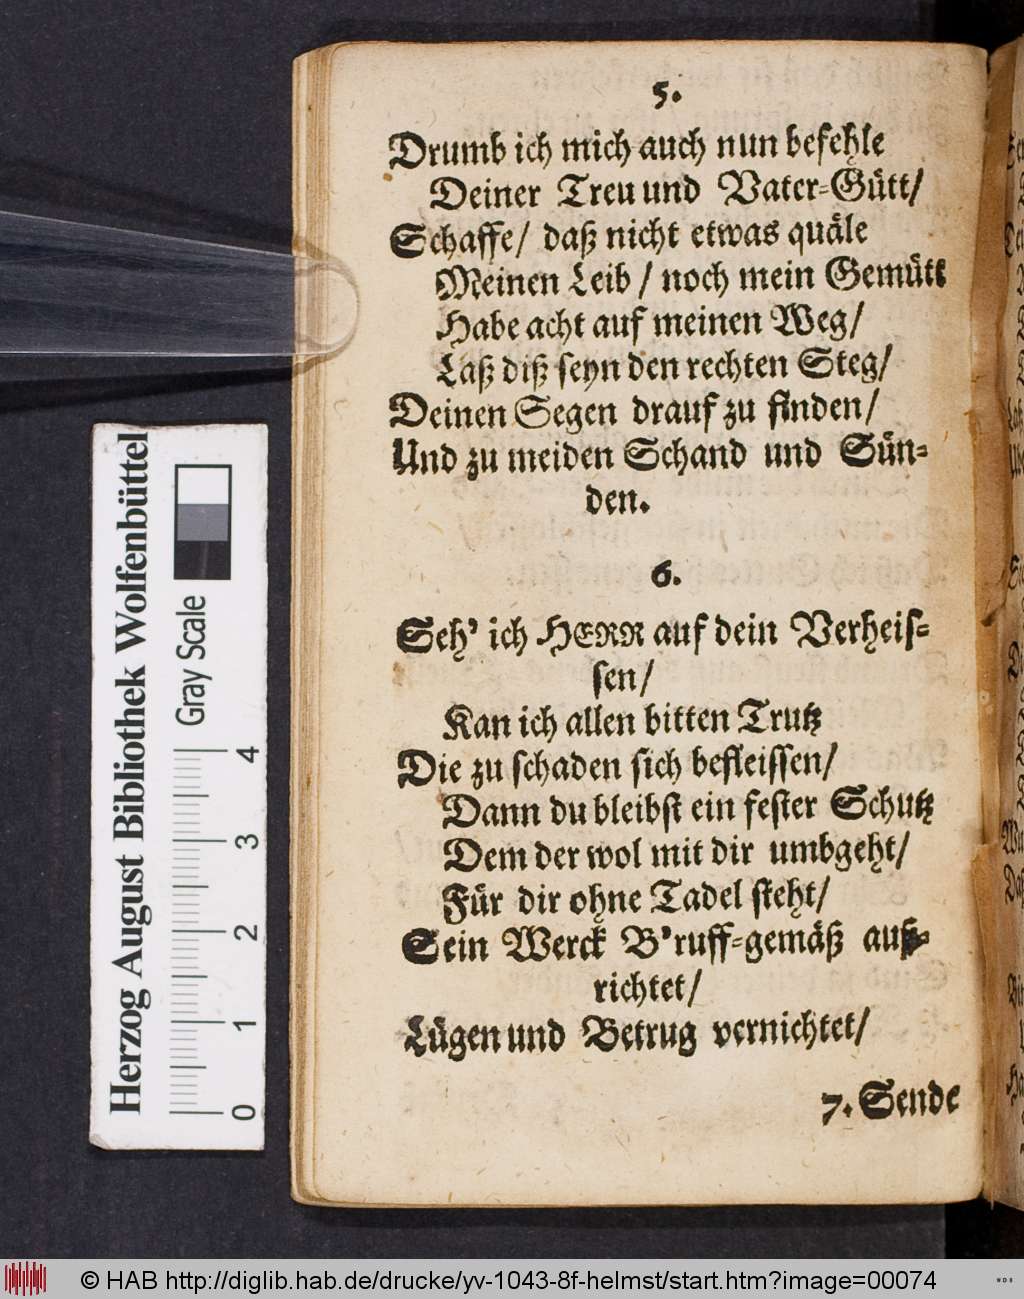 5.
Drumb ich mich auch nun befehle
Deiner Treu und Vater-Gütt/
Schaffe/ daß nicht etwas quäle
Meinen Leib / noch mein Gemütt
Habe acht auf meinen Weg/
Laß diß seyn den rechten Steg/
Deinen Segen drauf zu finden/
Und zu meiden Schand und Sün-
den.
6.
Seh' ich HERR auf dein Verheis-
sen/
Kan ich allen bitten Trutz
Die zu schaden sich befleissen/
Dann du bleibst ein fester Schutz
Dem der wol mit dir umbgeht/
Für dir ohne Tadel steht/
Sein Werck B'ruff-gemäß auß-
richtet/
Lügen und Betrug vernichtet/
7. Sende
Herzog August Bibliothek Wolfenbüttel
Gray Scale
0 1 2 3 4
© HAB http://diglib.hab.de/drucke/yv-1043-8f-helmst/start.htm?image=00074